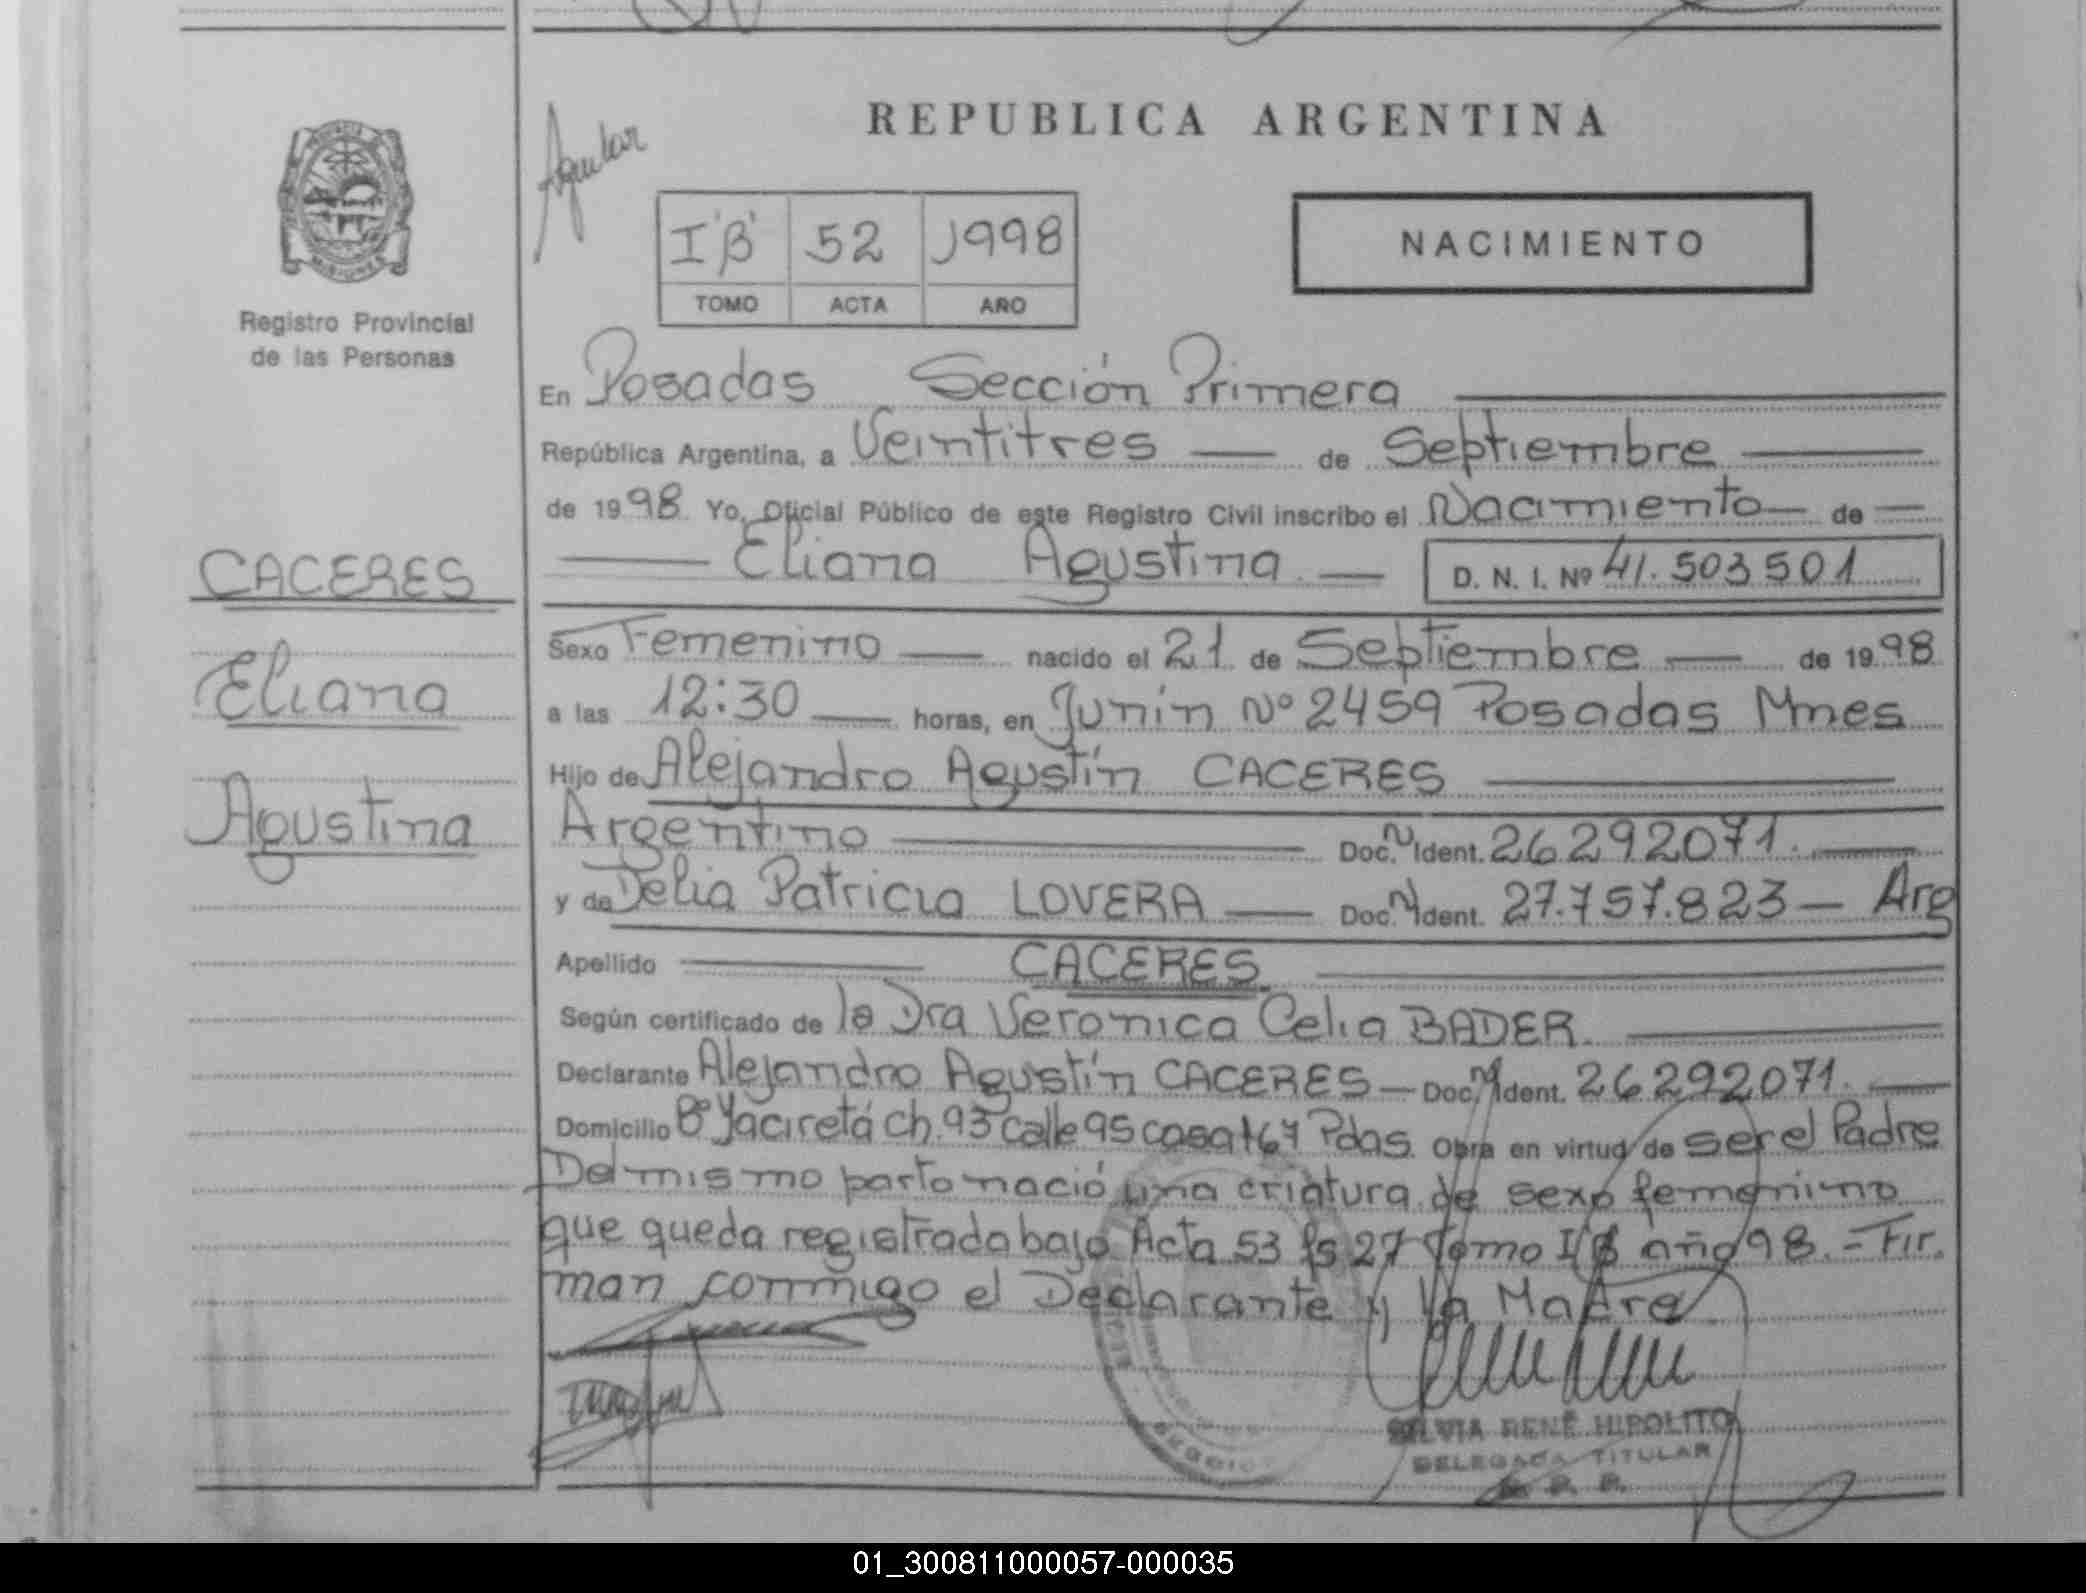 REPUBLICA ARGENTINA
Aguilar
I'B' 52 1998
TOMO ACTA AÑO
NACIMIENTO
PROVINCIA
MISIONES
Registro Provincial
de las Personas
En Posadas Sección Primera
República Argentina, a Veintitres — de Septiembre
de 1998 Yo, Oficial Público de este Registro Civil inscribo el Nacimiento — de —
— Eliana Agustina — D. N. I. Nº 41.503501
CACERES
Eliana
Agustina
Sexo Femenino — nacido el 21 de Septiembre — de 1998
a las 12:30 — horas, en Junín Nº 2459 Posadas Mnes
Hijo de Alejandro Agustín CACERES
Argentino — Doc. N Ident. 26292071. —
y de Delia Patricia LOVERA — Doc. N Ident. 27.757.823 — Arg
Apellido — CACERES —
Según certificado de la Dra Veronica Celia BADER. —
Declarante Alejandro Agustín CACERES — Doc. N Ident. 26292071. —
Domicilio Bº Yaciretá ch. 93 calle 95 casa 167 Pdas. Obra en virtud de ser el Padre
Del mismo parto nació una criatura de sexo femenino
que queda registrada bajo Acta 53 fs 27 Tomo I'B' año 98. = Fir.
man conmigo el Declarante y la Madre
SILVIA RENÉ HIPOLITO
DELEGADA TITULAR
R. P. P.
01_300811000057-000035